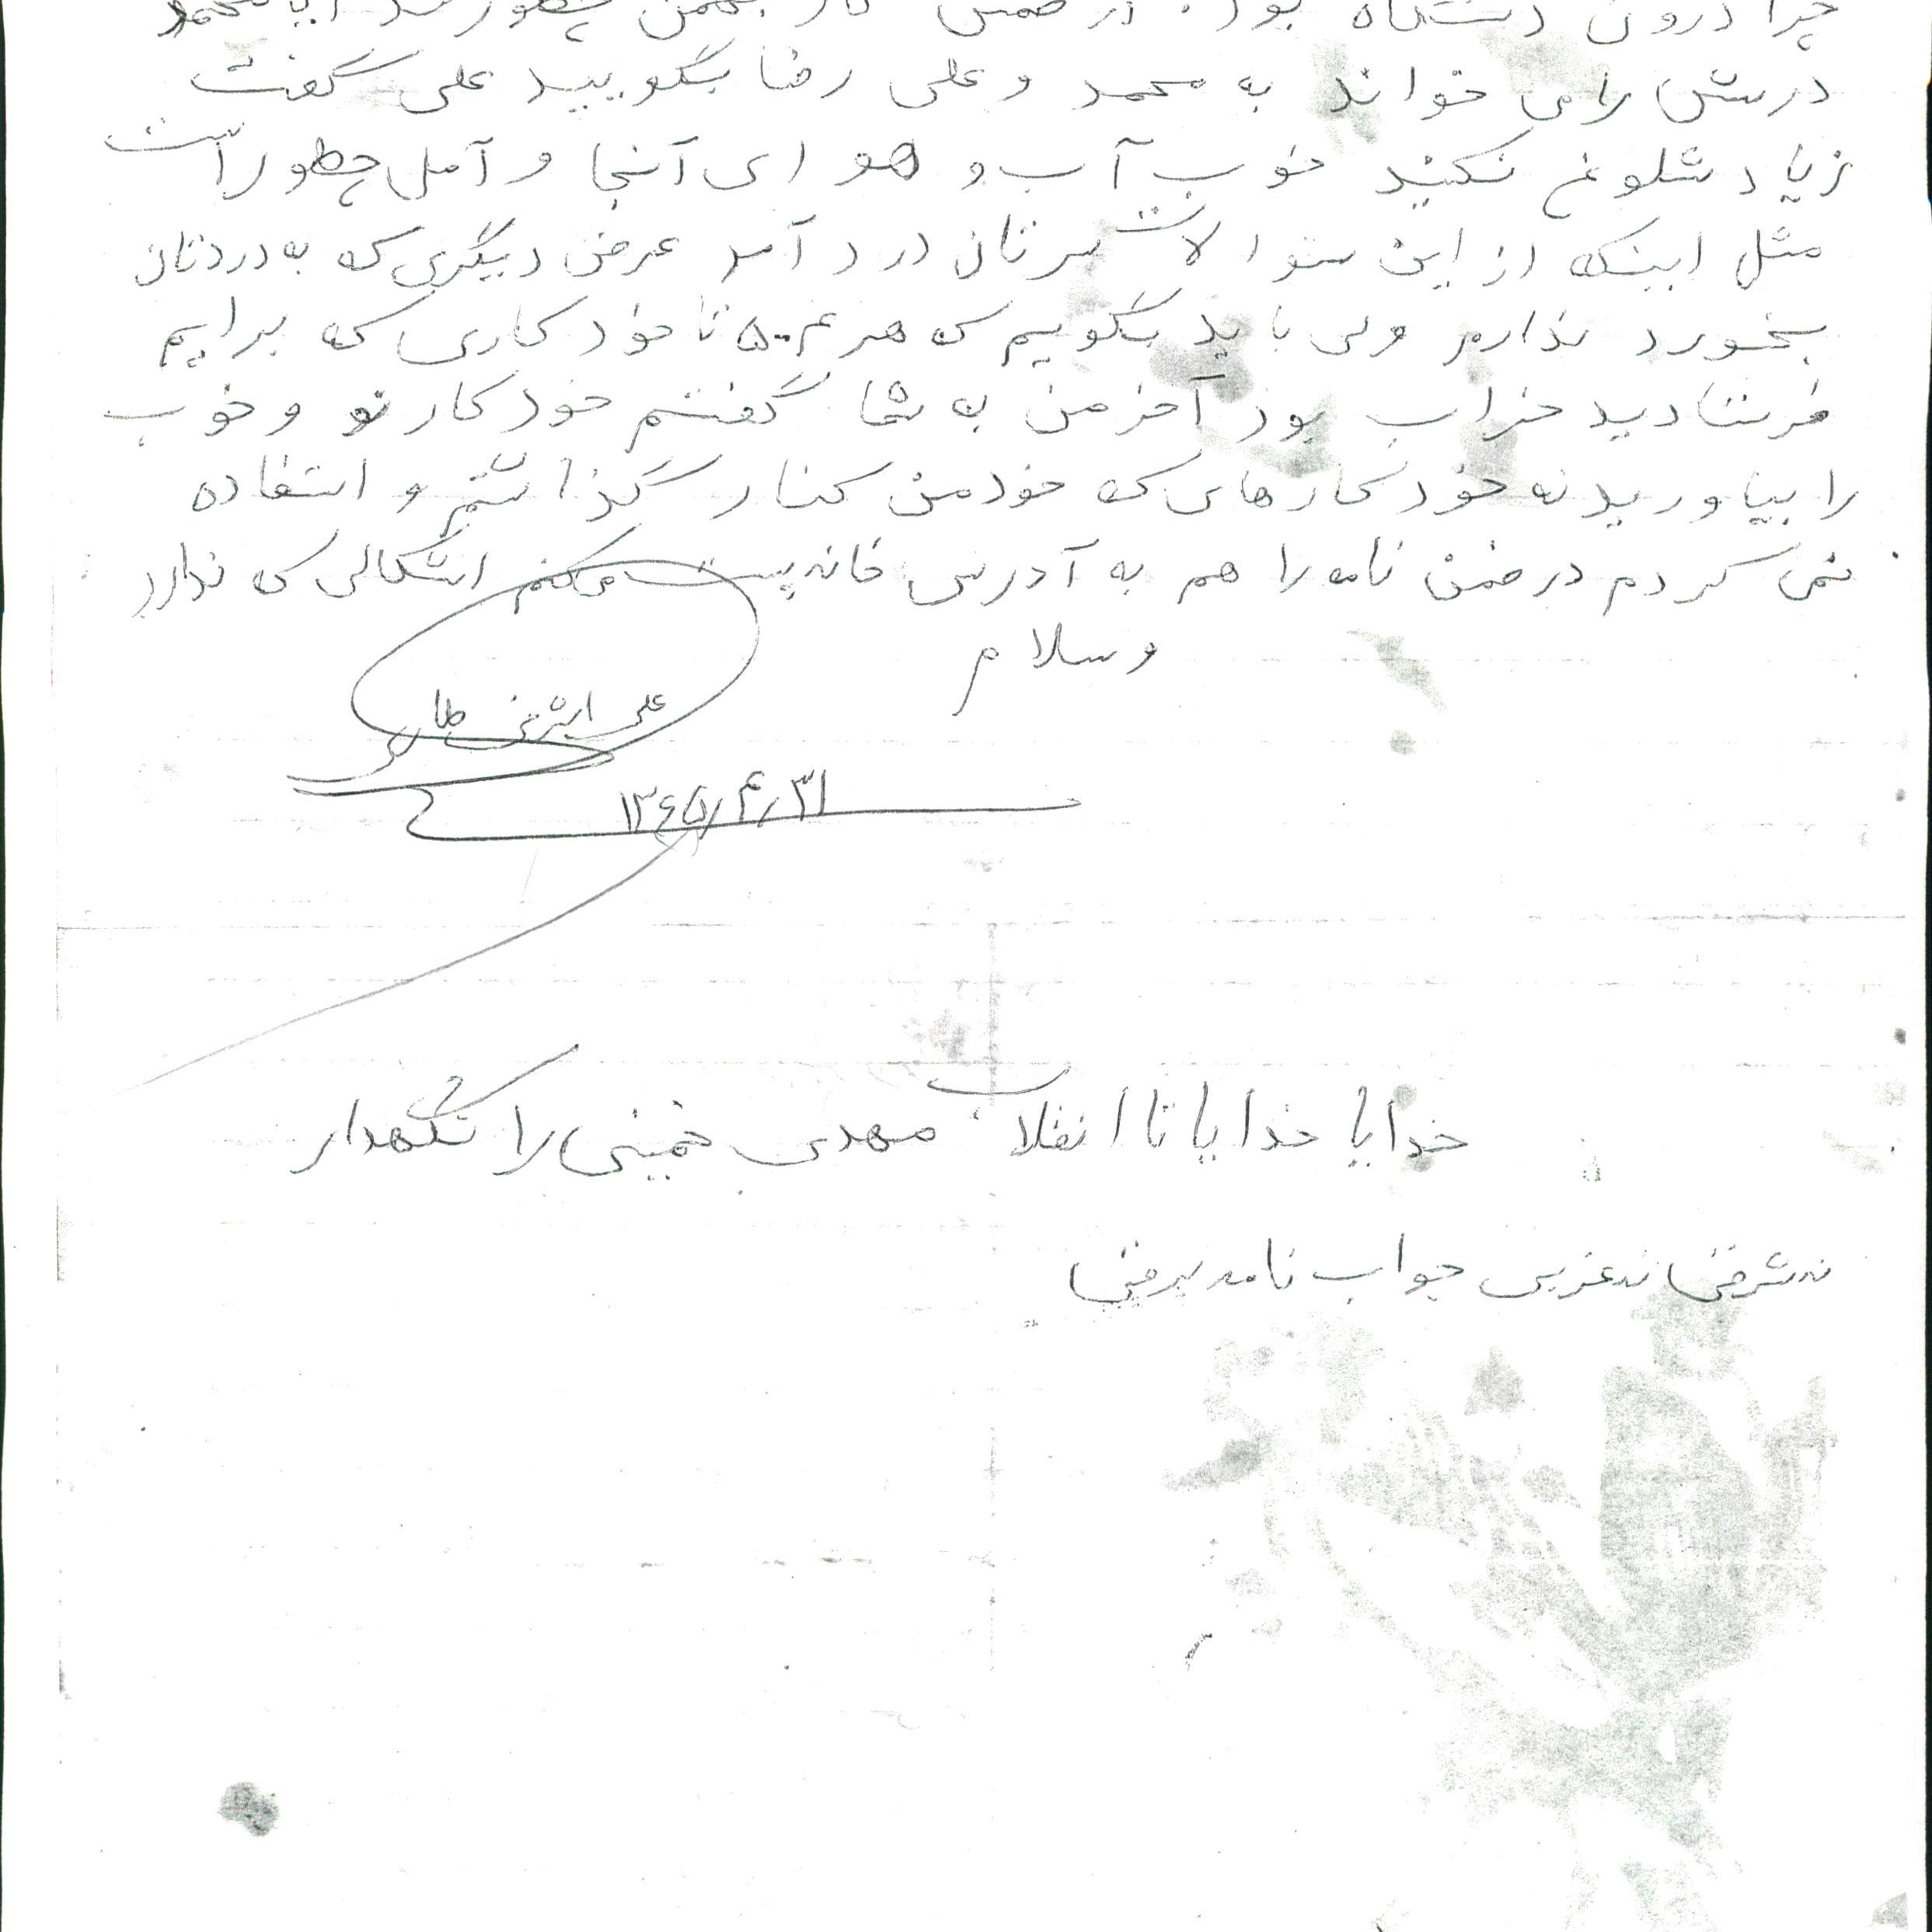 چرا درون دستگاه بود. در ضمن کار بهمن چطور شد آیا محمد
درسش را می خواند به محمد و علی رضا بگویید علی گفت
زیاد شلوغ نکنید خوب آب و هوای آنجا و آمل چطور است
مثل اینکه از این سئوالات سرتان درد آمد عرض دیگری که به دردتان
بخورد ندارم ولی باید بگویم که هر ۵۰۰ تا خودکاری که برایم
فرستادید خراب بود آخر من به شما گفتم خودکار نو و خوب
را بیاورید نه خودکارهای که خودمن کنار گذاشتم و استفاده
نمی کردم در ضمن نامه را هم به آدرس خانه پست میکنم اشکالی که ندارد
وسلام
علی اشرفی
۱۳۶۵/۴/۳۱
خدایا خدایا تا انقلاب مهدی خمینی را نگهدار
نه شرقی نه غربی جواب نامه برقی